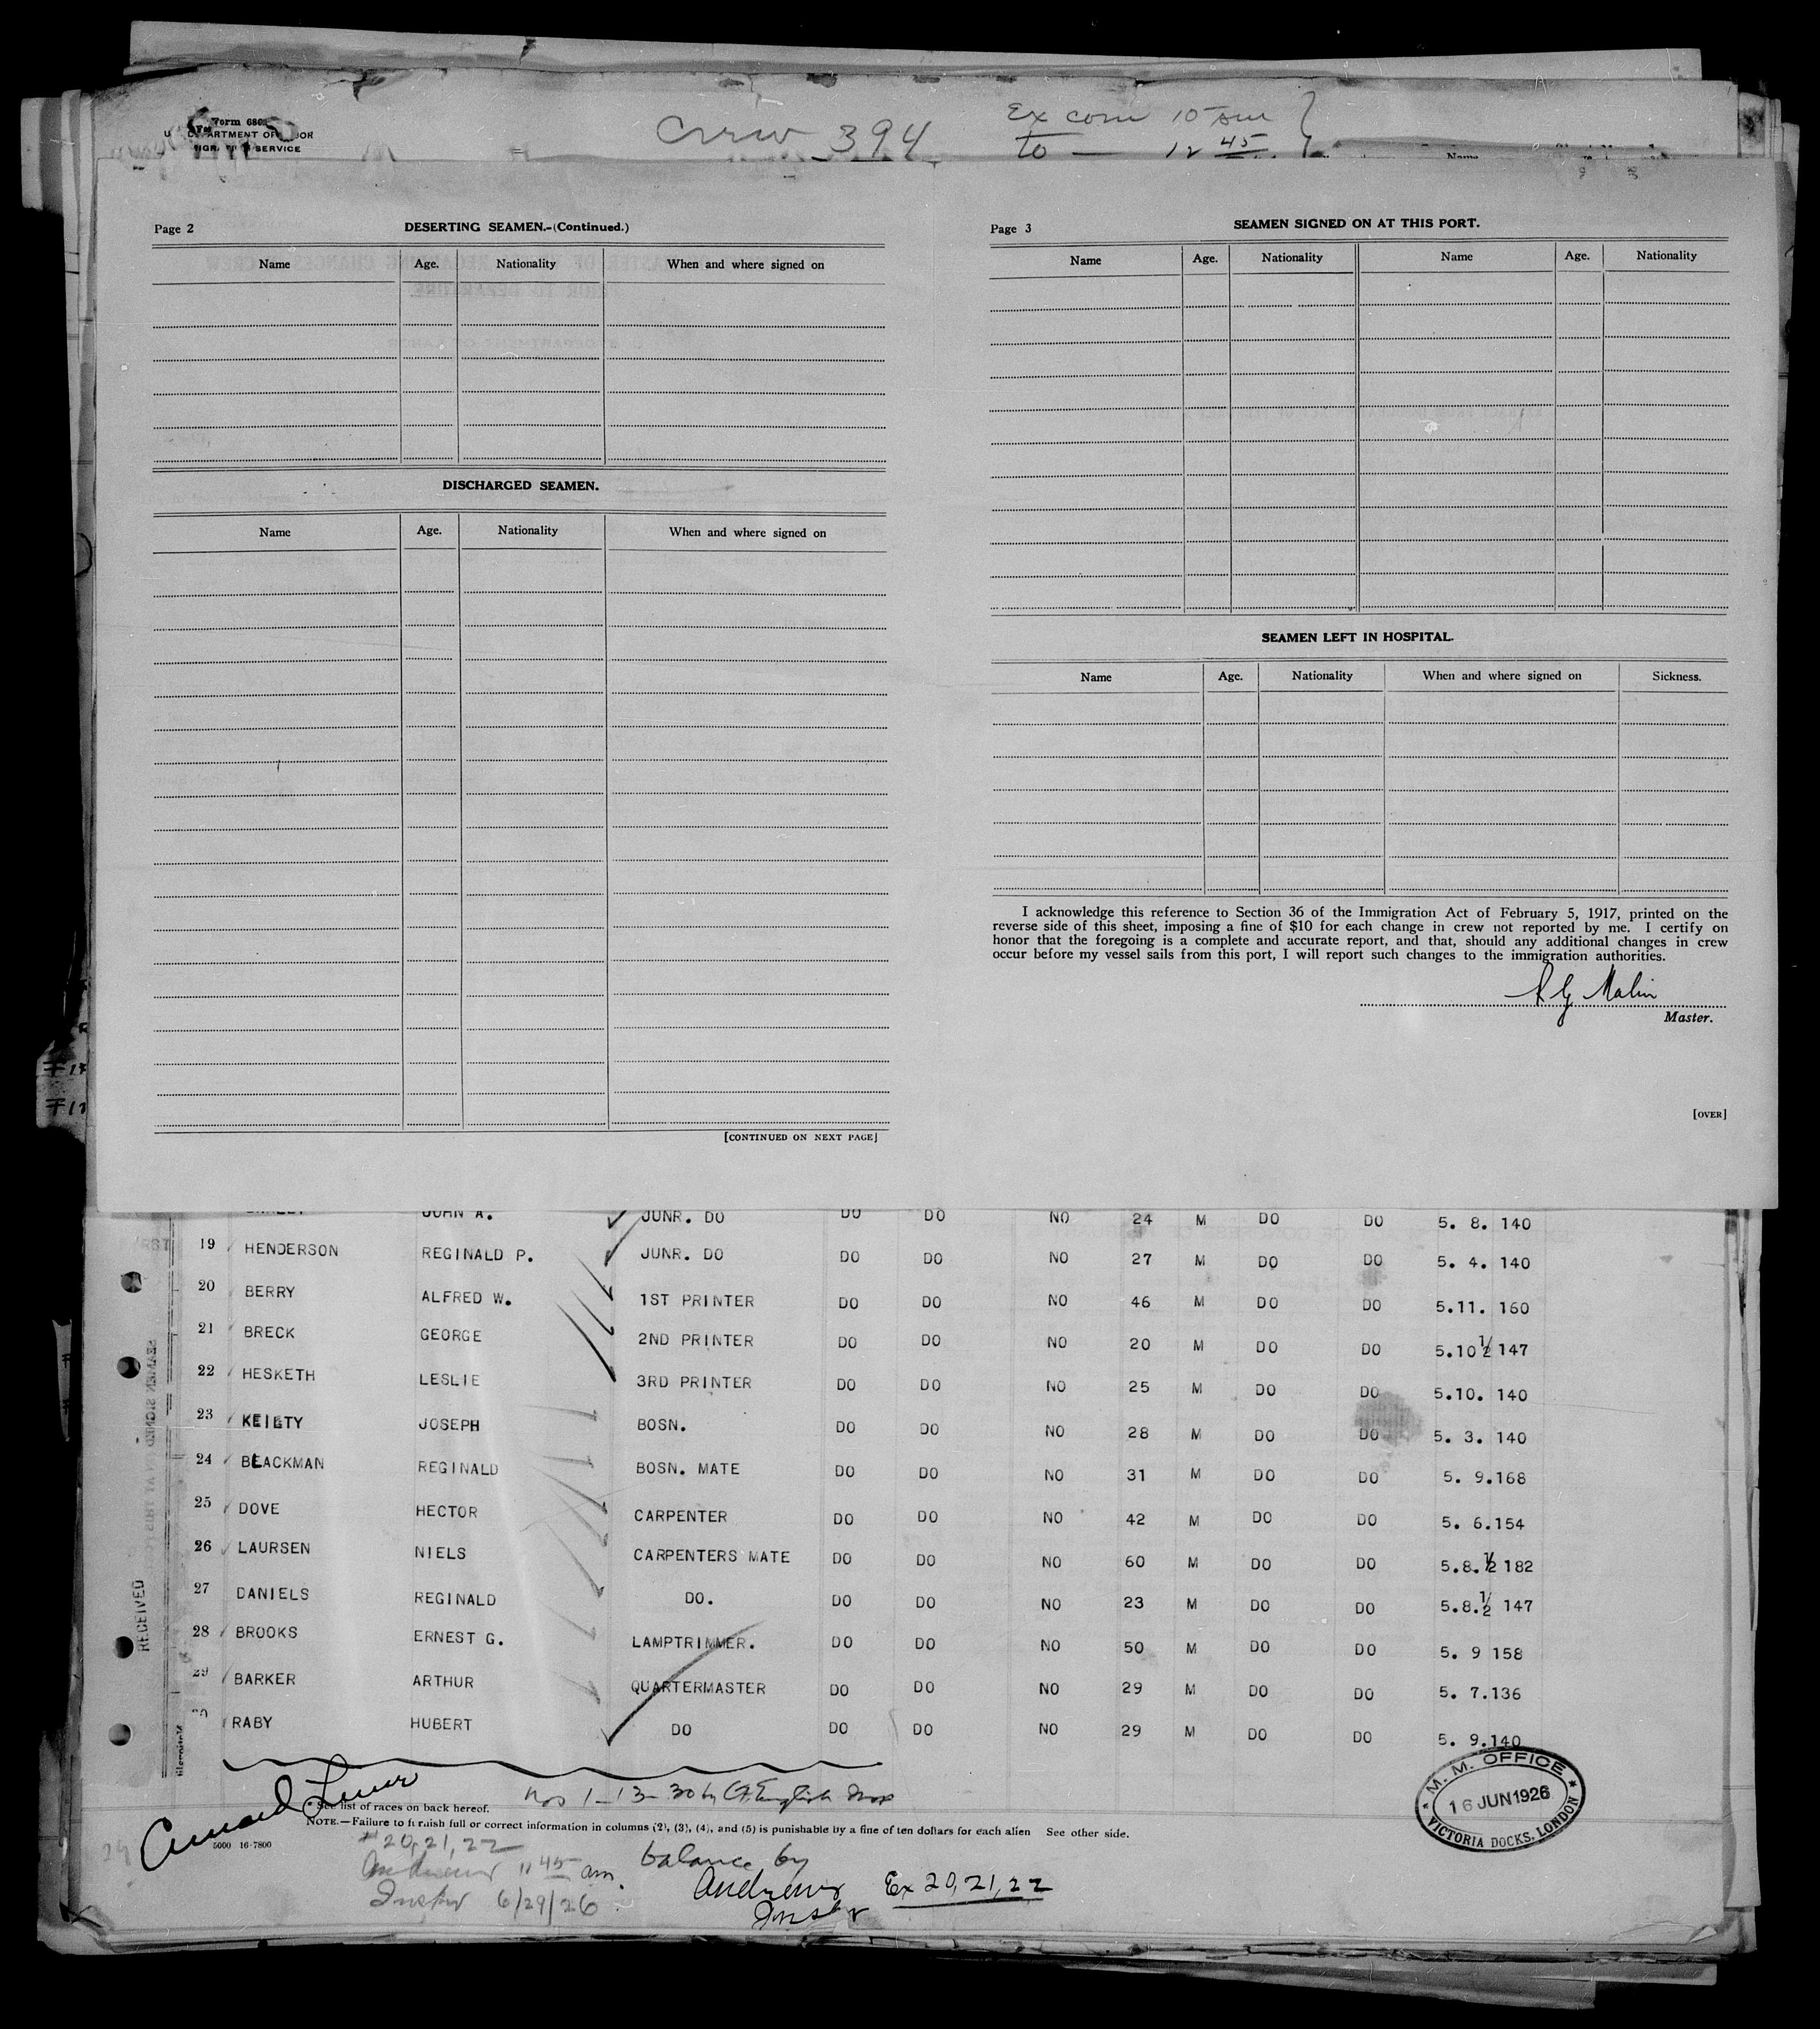 Form 680
DEPARTMENT OF LABOR
SERVICE
Crew 394
Ex com 10 am
to — 12 45
Page 2
DESERTING SEAMEN.-(Continued.)
Name Age. Nationality When and where signed on
DISCHARGED SEAMEN.
Name Age. Nationality When and where signed on
[CONTINUED ON NEXT PAGE]
Page 3
SEAMEN SIGNED ON AT THIS PORT.
Name Age. Nationality Name Age. Nationality
SEAMEN LEFT IN HOSPITAL.
Name Age. Nationality When and where signed on Sickness.
I acknowledge this reference to Section 36 of the Immigration Act of February 5, 1917, printed on the
reverse side of this sheet, imposing a fine of $10 for each change in crew not reported by me. I certify on
honor that the foregoing is a complete and accurate report, and that, should any additional changes in crew
occur before my vessel sails from this port, I will report such changes to the immigration authorities.
Malin
Master.
[OVER]
JOHN A. JUNR. DO DO DO NO 24 M DO DO 5. 8. 140
19 HENDERSON REGINALD P. JUNR. DO DO DO NO 27 M DO DO 5. 4. 140
20 BERRY ALFRED W. 1ST PRINTER DO DO NO 46 M DO DO 5.11. 160
21 BRECK GEORGE 2ND PRINTER DO DO NO 20 M DO DO 5.10 1/2 147
22 HESKETH LESLIE 3RD PRINTER DO DO NO 25 M DO DO 5.10. 140
23 KEILTY JOSEPH BOSN. DO DO NO 28 M DO DO 5. 3. 140
24 BLACKMAN REGINALD BOSN. MATE DO DO NO 31 M DO DO 5. 9.168
25 DOVE HECTOR CARPENTER DO DO NO 42 M DO DO 5. 6.154
26 LAURSEN NIELS CARPENTERS MATE DO DO NO 60 M DO DO 5.8.1/2 182
27 DANIELS REGINALD DO. DO DO NO 23 M DO DO 5.8.1/2 147
28 BROOKS ERNEST G. LAMPTRIMMER. DO DO NO 50 M DO DO 5. 9 158
29 BARKER ARTHUR QUARTERMASTER DO DO NO 29 M DO DO 5. 7.136
RABY HUBERT DO DO DO NO 29 M DO DO 5. 9.140
RECEIVED
Nos 1-13-30 by English
See list of races on back hereof.
NOTE.—Failure to furnish full or correct information in columns (2), (3), (4), and (5) is punishable by a fine of ten dollars for each alien See other side.
5000 16-7800
#20, 21, 22
Andrews 11 45 am.
Insptr 6/29/26
balance by
Andrews
Instr
Ex 20, 21, 22
M. M. OFFICE
16 JUN 1926
VICTORIA DOCKS, LONDON